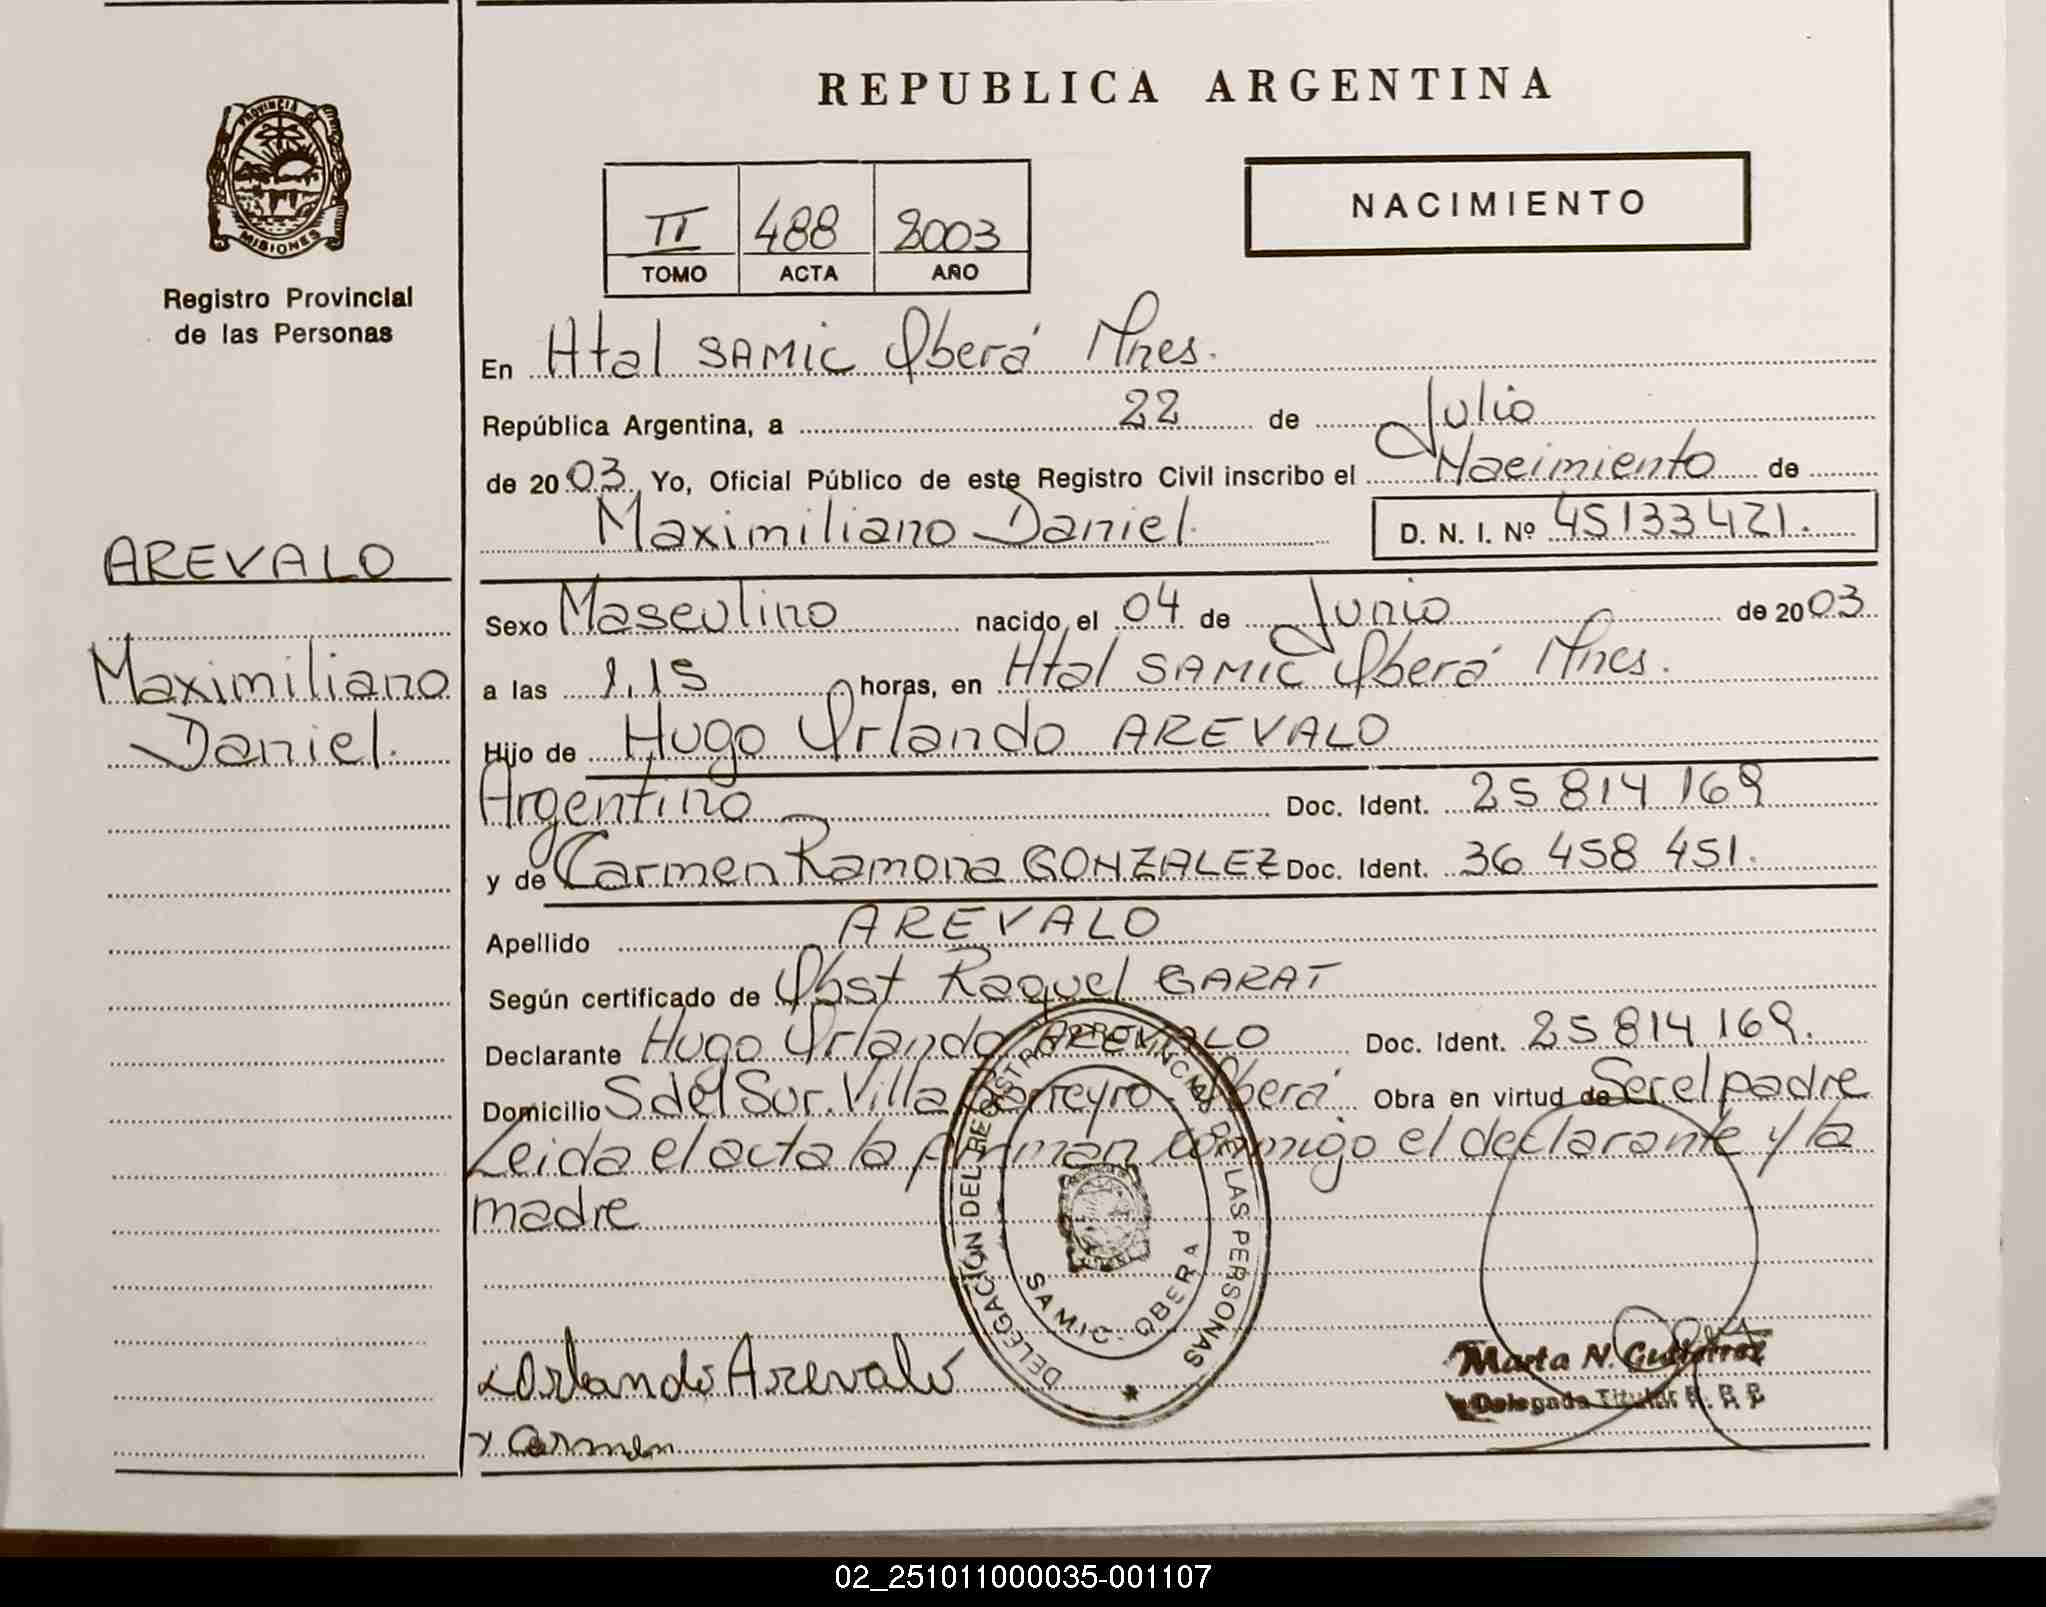 REPUBLICA ARGENTINA
PROVINCIA DE
MISIONES
Registro Provincial
de las Personas
II 488 2003
TOMO ACTA AÑO
NACIMIENTO
En Htal SAMIC Oberá Mnes.
República Argentina, a 22 de Julio
de 2003. Yo, Oficial Público de este Registro Civil inscribo el Nacimiento de
Maximiliano Daniel. D. N. I. Nº 45133421.
AREVALO
Maximiliano
Daniel.
Sexo Masculino nacido el 04 de Junio de 2003
a las 1,15 horas, en Htal SAMIC Oberá Mnes.
Hijo de Hugo Orlando AREVALO
Argentino Doc. Ident. 25 814 169
y de Carmen Ramona GONZALEZ Doc. Ident. 36 458 451.
Apellido AREVALO
Según certificado de Obst Raquel GARAT
Declarante Hugo Orlando AREVALO Doc. Ident. 25 814 169.
Domicilio S del Sur. Villa Barreyro. Oberá Obra en virtud de Ser el padre
Leida el acta la firman conmigo el declarante y la
madre
DELEGACIÓN DEL REGISTRO PROVINCIAL DE LAS PERSONAS
SAMIC - OBERA
x Orlando Arevalo
Marta N. Gutierrez
Delegada Titular R. P. P.
x Carmen
02_251011000035-001107